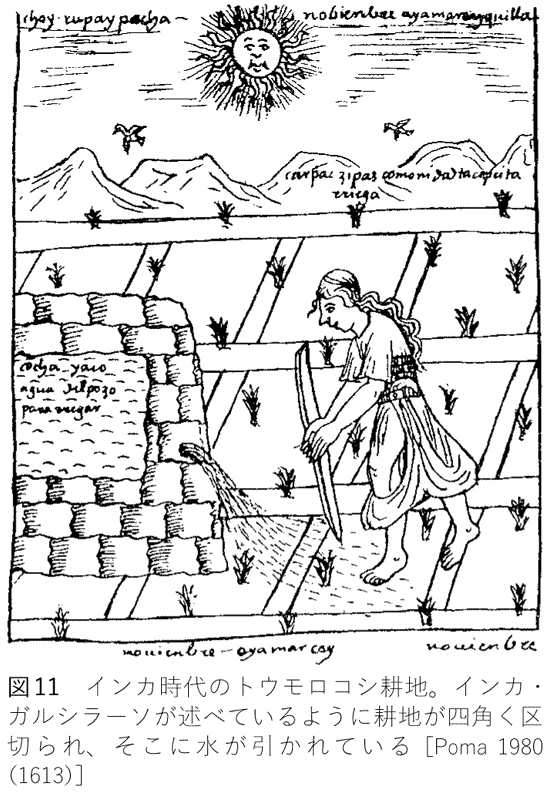 choy. rupay pacha – nobienbre ayamarcayquilla
carpac zipas comoni
uriega
cocha yaco
agua del pozo
para rregar
nouienbre – ayamarcay nouienbre
図11 インカ時代のトウモロコシ耕地。インカ・
ガルシラーソが述べているように耕地が四角く区
切られ、そこに水が引かれている [Poma 1980
(1613)]